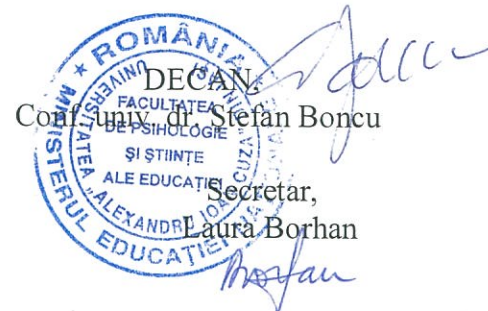 DECAN,
Conf. univ. dr. Ștefan Boncu
Secretar,
Laura Borhan
★ ROMÂNIA ★
MINISTERUL EDUCAȚIEI
UNIVERSITATEA „ALEXANDRU IOAN CUZA"
FACULTATEA
DE PSIHOLOGIE
ȘI ȘTIINȚE
ALE EDUCAȚIEI